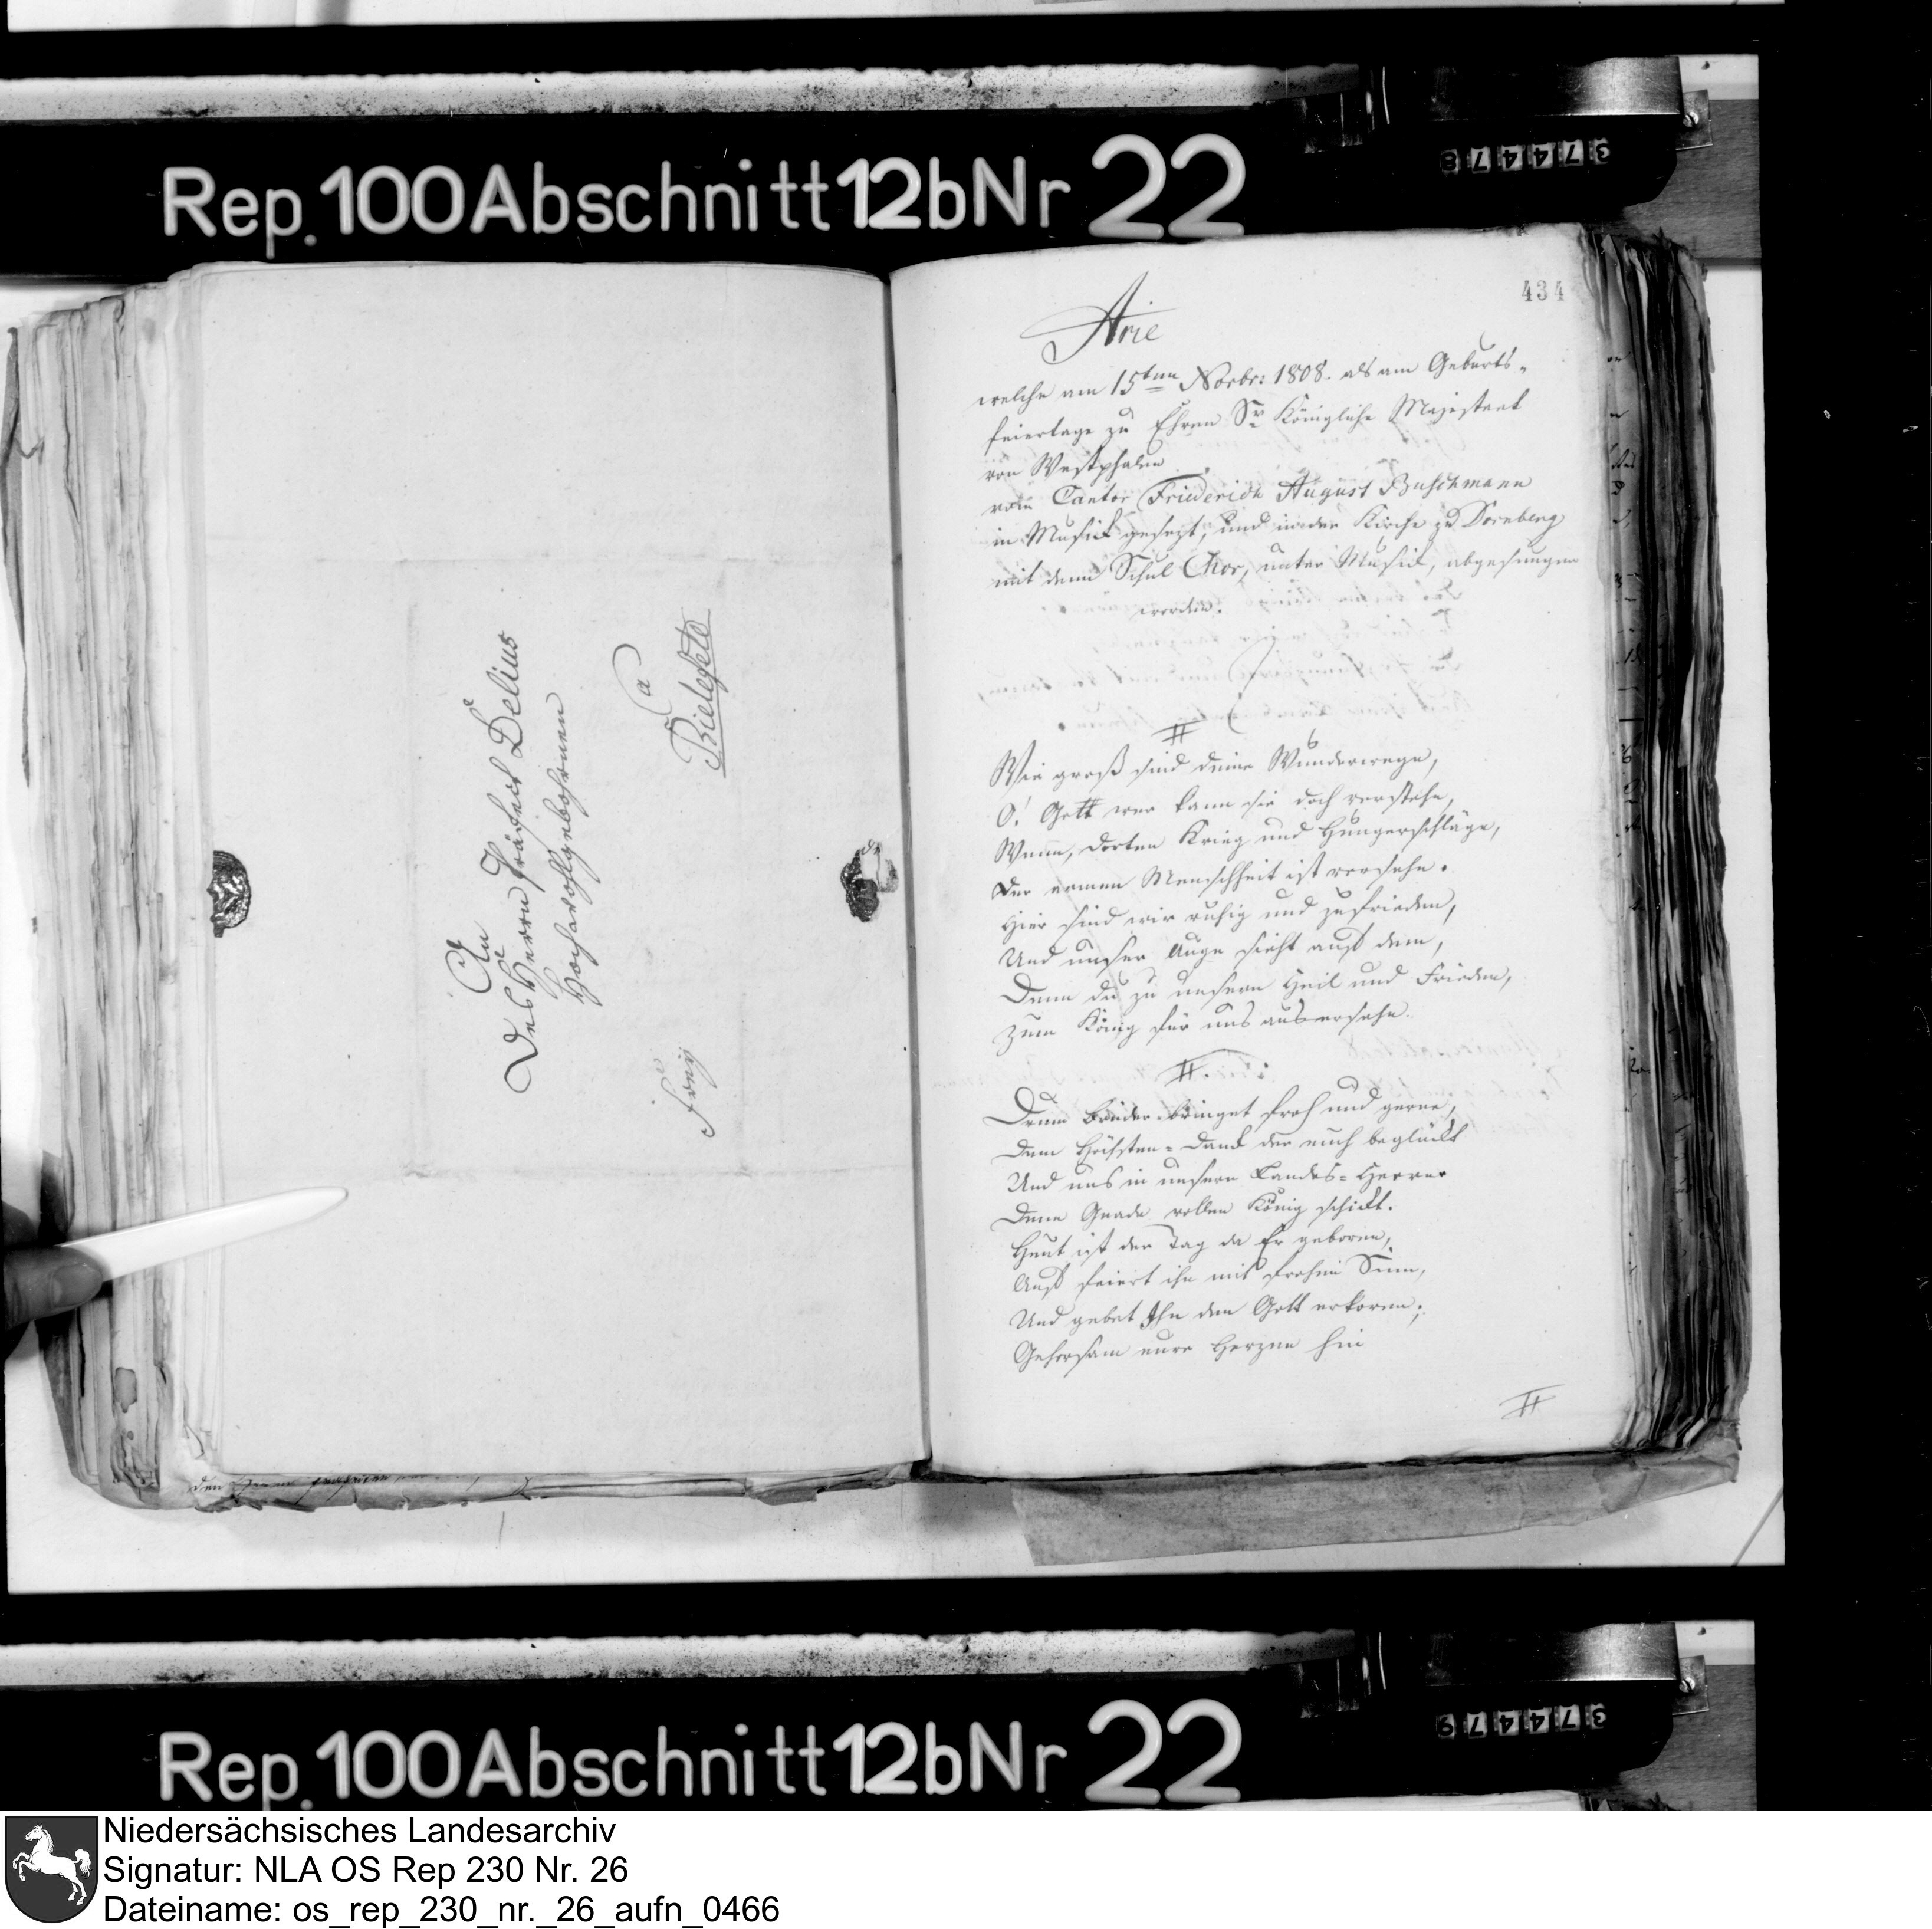 Rep. 100 Abschnitt 12b Nr 22
374478
An
Des Herrn Präfect Delius
Hochwollgebohrnen
a
Bielefeld
frey
434
Arie
welche am 15ten Novbr: 1808. als am Geburts-
feiertage zu Ehren Sr Königliche Majestaet
von Westphalen
vom Cantor Friederich August Buschmann
in Musick gesezt, und in der Kirche zu Dornberg
mit dem Schul Chor, unter Musick, abgesungen
worden.
Wie groß sind deine Wunderwege,
O! Gott wer kann sie doch verstehn,
Wenn, dorten Krieg und Hungerschläge,
Der armen Menschheit ist versehn.
Hier sind wir ruhig und zufrieden,
Und unser Auge sieht auf den,
Denn du zu unsern Heil und Frieden,
Zum König für uns ausersehn.
II.
Drum Brüder bringet froh und gerne,
Dem Höchsten-Danck der euch beglückt
Und uns in unsern Landes-Herrn
Denn Gnade vollen König schickt.
Heut ist der Tag da Er geboren,
Auf feiert ihn mit frohem Sinn,
Und gebet Ihn den Gott erkoren;
Gehorsam eure Herzen hin
den Herrn
Rep. 100 Abschnitt 12b Nr 22
374479
Niedersächsisches Landesarchiv
Signatur: NLA OS Rep 230 Nr. 26
Dateiname: os_rep_230_nr._26_aufn_0466